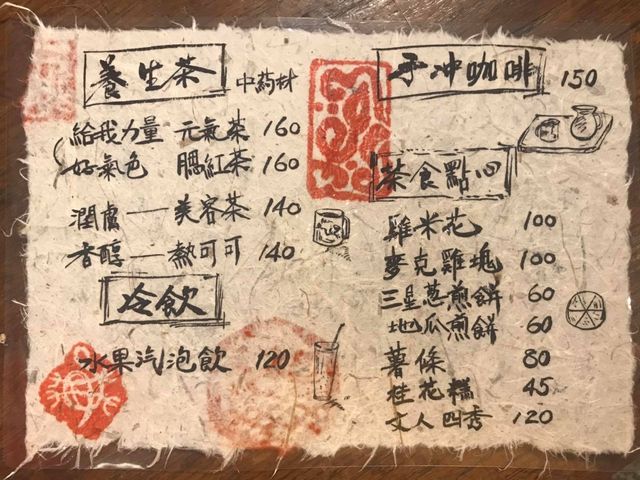 養生茶 中药材
給我力量 元氣茶 160
好氣色 腮紅茶 160
潤膚——美容茶 140
香醇——熱可可 140
冷飲
水果汽泡飲 120
手冲咖啡 150
茶食點心
雞米花 100
麥克雞塊 100
三星蔥煎餅 60
地瓜煎餅 60
薯條 80
桂花糕 45
文人四秀 120